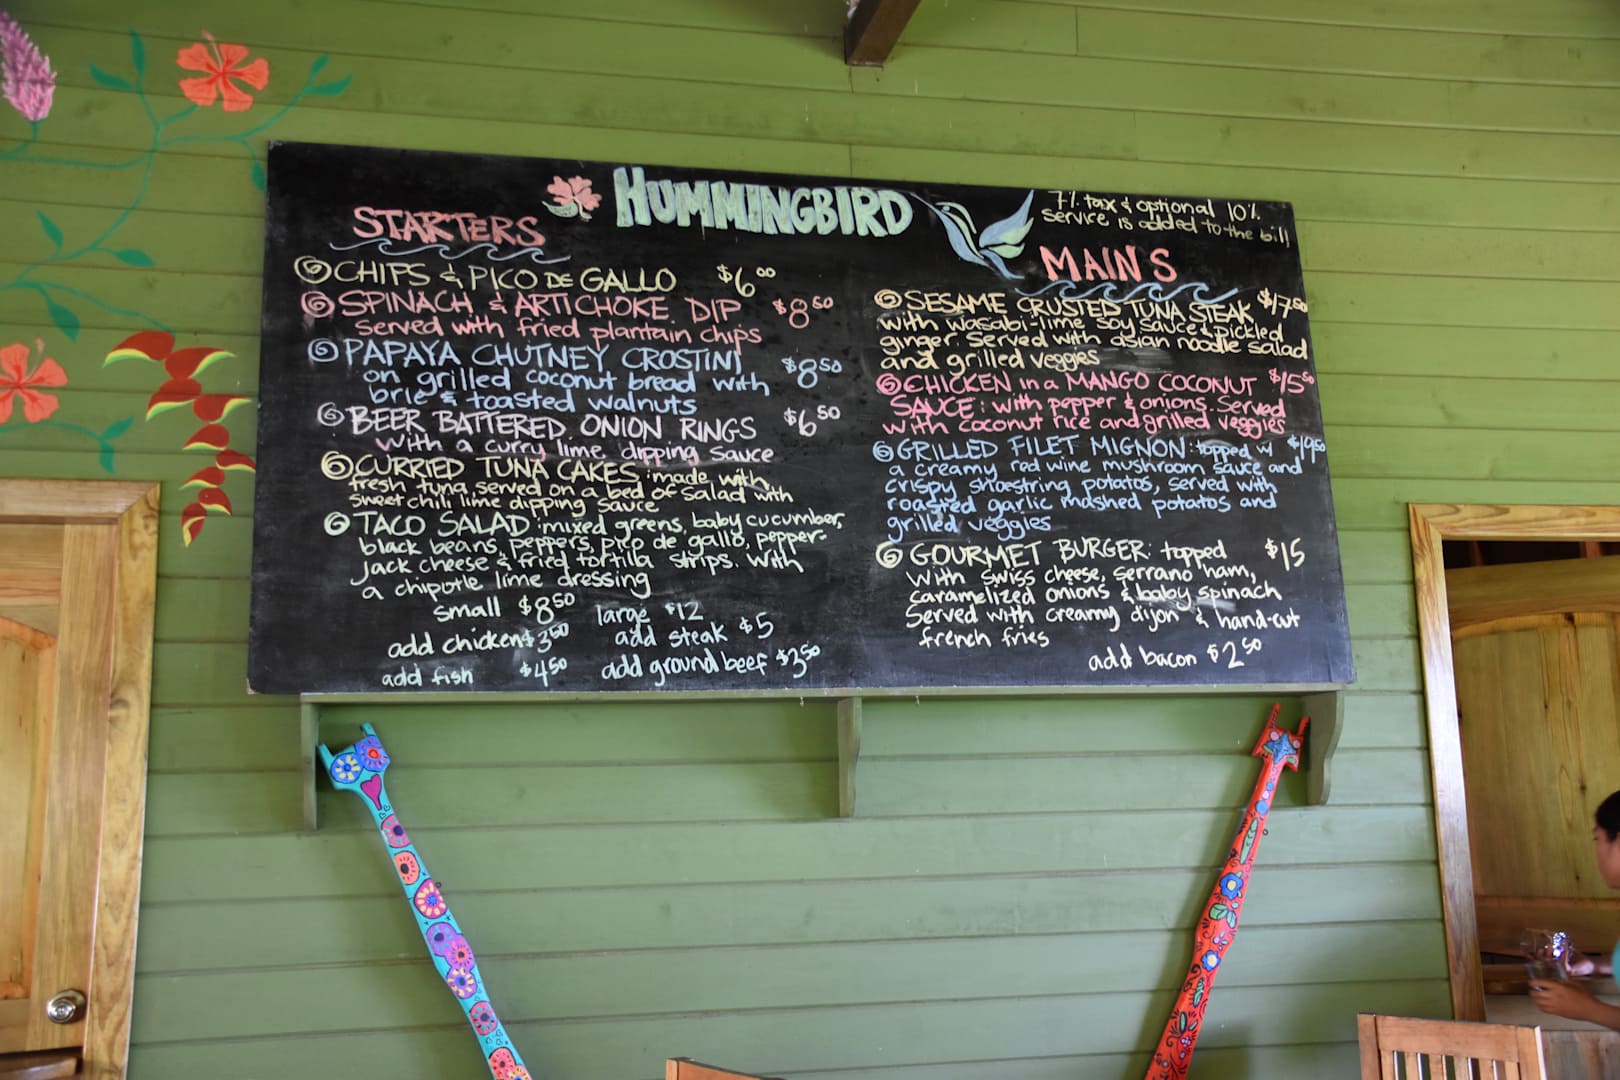 HUMMINGBIRD
7% tax & optional 10%
service is added to the bill
STARTERS
CHIPS & PICO DE GALLO $6.00
SPINACH & ARTICHOKE DIP $8.50
served with fried plantain chips
PAPAYA CHUTNEY CROSTINI $8.50
on grilled coconut bread with
brie & toasted walnuts
BEER BATTERED ONION RINGS $6.50
with a curry lime dipping sauce
CURRIED TUNA CAKES: made with
fresh tuna served on a bed of salad with
sweet chili lime dipping sauce
TACO SALAD: mixed greens, baby cucumber,
black beans, peppers, pico de gallo, pepper-
jack cheese & fried tortilla strips. with
a chipotle lime dressing
small $8.50 large $12
add chicken $3.50 add steak $5
add fish $4.50 add ground beef $3.50
MAINS
SESAME CRUSTED TUNA STEAK $17.50
with wasabi-lime soy sauce & pickled
ginger. Served with asian noodle salad
and grilled veggies
CHICKEN in a MANGO COCONUT $15.50
SAUCE: with pepper & onions. Served
with coconut rice and grilled veggies
GRILLED FILET MIGNON: topped w/ $19.50
a creamy red wine mushroom sauce and
crispy shoestring potatos, served with
roasted garlic mashed potatos and
grilled veggies
GOURMET BURGER: topped $15
with swiss cheese, serrano ham,
caramelized onions & baby spinach
Served with creamy dijon & hand-cut
french fries
add bacon $2.50